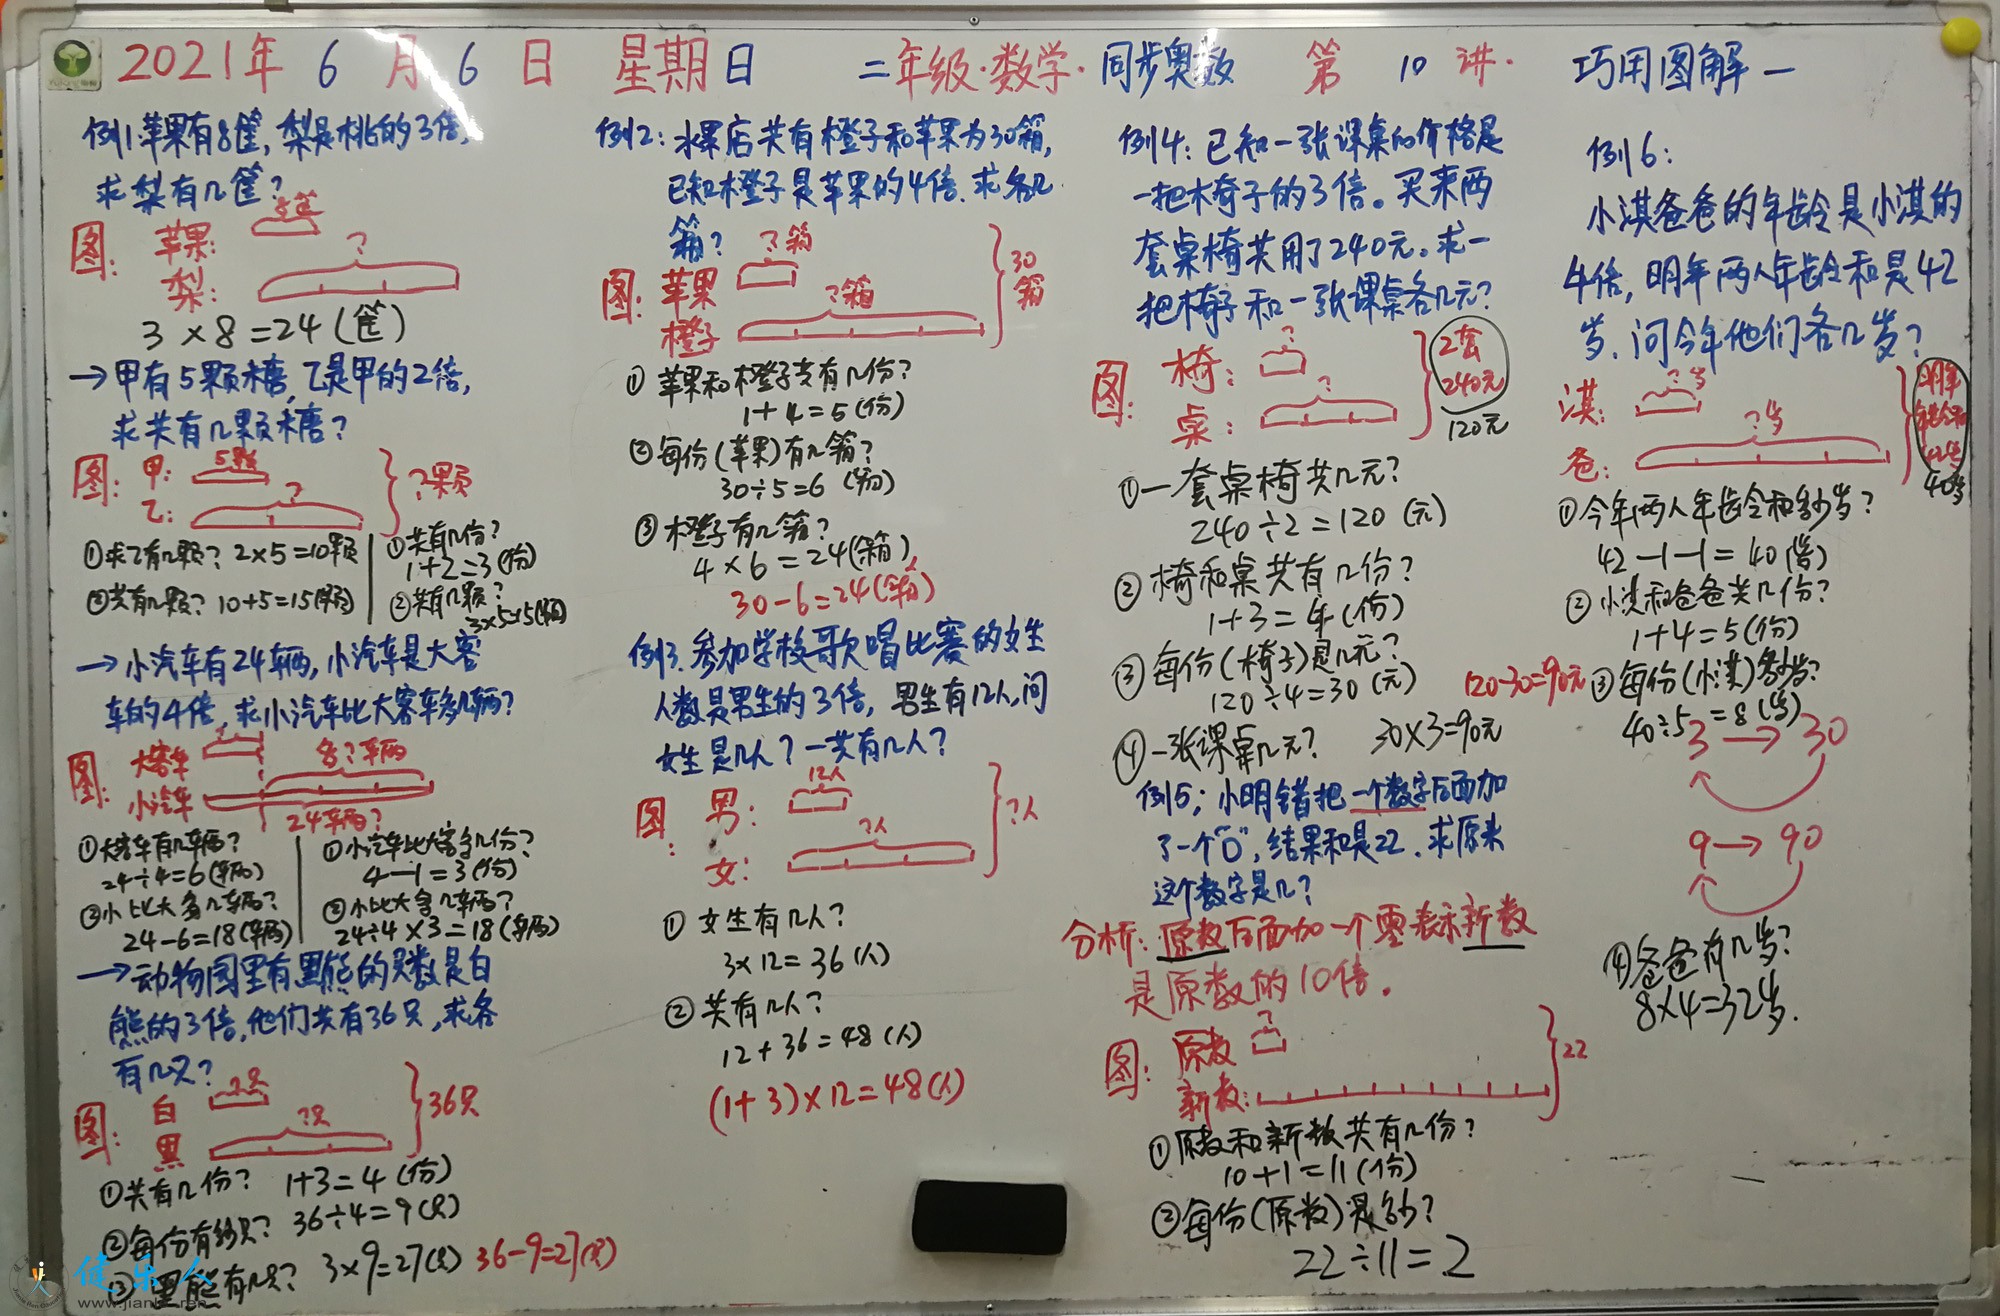 2021年 6 月 6 日 星期日 二年级·数学·同步奥数 第 10 讲· 巧用图解一
例1:苹果有8筐,梨是桃的3倍,
求梨有几筐?
8筐
图: 苹果:
?
梨:
3×8=24(筐)
→甲有5颗糖,乙是甲的2倍,
求共有几颗糖?
图: 甲: 5颗
?
乙:
?颗
①求乙有几颗? 2×5=10颗
②共有几颗? 10+5=15(颗)
①共有几份?
1+2=3(份)
②共有几颗?
3×5=15(颗)
→小汽车有24辆,小汽车是大客
车的4倍,求小汽车比大客车多几辆?
图: 大客车
多?车辆
小汽车
24车辆?
①大客车有几车辆?
24÷4=6(车辆)
②小比大多几车辆?
24-6=18(车辆)
①小汽车比大客多几份?
4-1=3(份)
②小比大多几车辆?
24÷4×3=18(车辆)
→动物园里有黑熊的只数是白
熊的3倍,他们共有36只,求各
有几只?
?只
图: 白
?只
黑
36只
①共有几份? 1+3=4(份)
②每份有多少只? 36÷4=9(只)
③黑熊有几只? 3×9=27(只) 36-9=27(只)
例2:水果店共有橙子和苹果为30箱,
已知橙子是苹果的4倍.求各几
箱?
?箱
图: 苹果
?箱
橙子
30
箱
①苹果和橙子共有几份?
1+4=5(份)
②每份(苹果)有几箱?
30÷5=6(箱)
③橙子有几箱?
4×6=24(箱)
30-6=24(箱)
例3.参加学校歌唱比赛的女生
人数是男生的3倍,男生有12人,问
女生是几人?一共有几人?
12人
图: 男:
?人
女:
?人
①女生有几人?
3×12=36(人)
②共有几人?
12+36=48(人)
(1+3)×12=48(人)
例4:已知一张课桌的价格是
一把椅子的3倍。买来两
套桌椅共用了240元。求一
把椅子和一张课桌各几元?
?
图: 椅:
?
桌:
2套
240元
120元
①一套桌椅共几元?
240÷2=120(元)
②椅和桌共有几份?
1+3=4(份)
③每份(椅子)是几元?
120÷4=30(元)
120-30=90元
④一张课桌几元? 30×3=90元
例5;小明错把一个数字后面加
了一个"0",结果和是22.求原来
这个数字是几?
分析:原数后面加一个零表示新数
是原数的10倍。
?
图: 原数
新数:
22
①原数和新数共有几份?
10+1=11(份)
②每份(原数)是多少?
22÷11=2
例6:
小淇爸爸的年龄是小淇的
4倍,明年两人年龄和是42
岁.问今年他们各几岁?
?岁
淇:
?岁
爸:
明年
年龄和
42岁
40岁
①今年两人年龄和多少岁?
42-1-1=40(岁)
②小淇和爸爸共几份?
1+4=5(份)
③每份(小淇)多少岁?
40÷5=8(岁)
3→30
9→90
④爸爸有几岁?
8×4=32岁.
健乐人